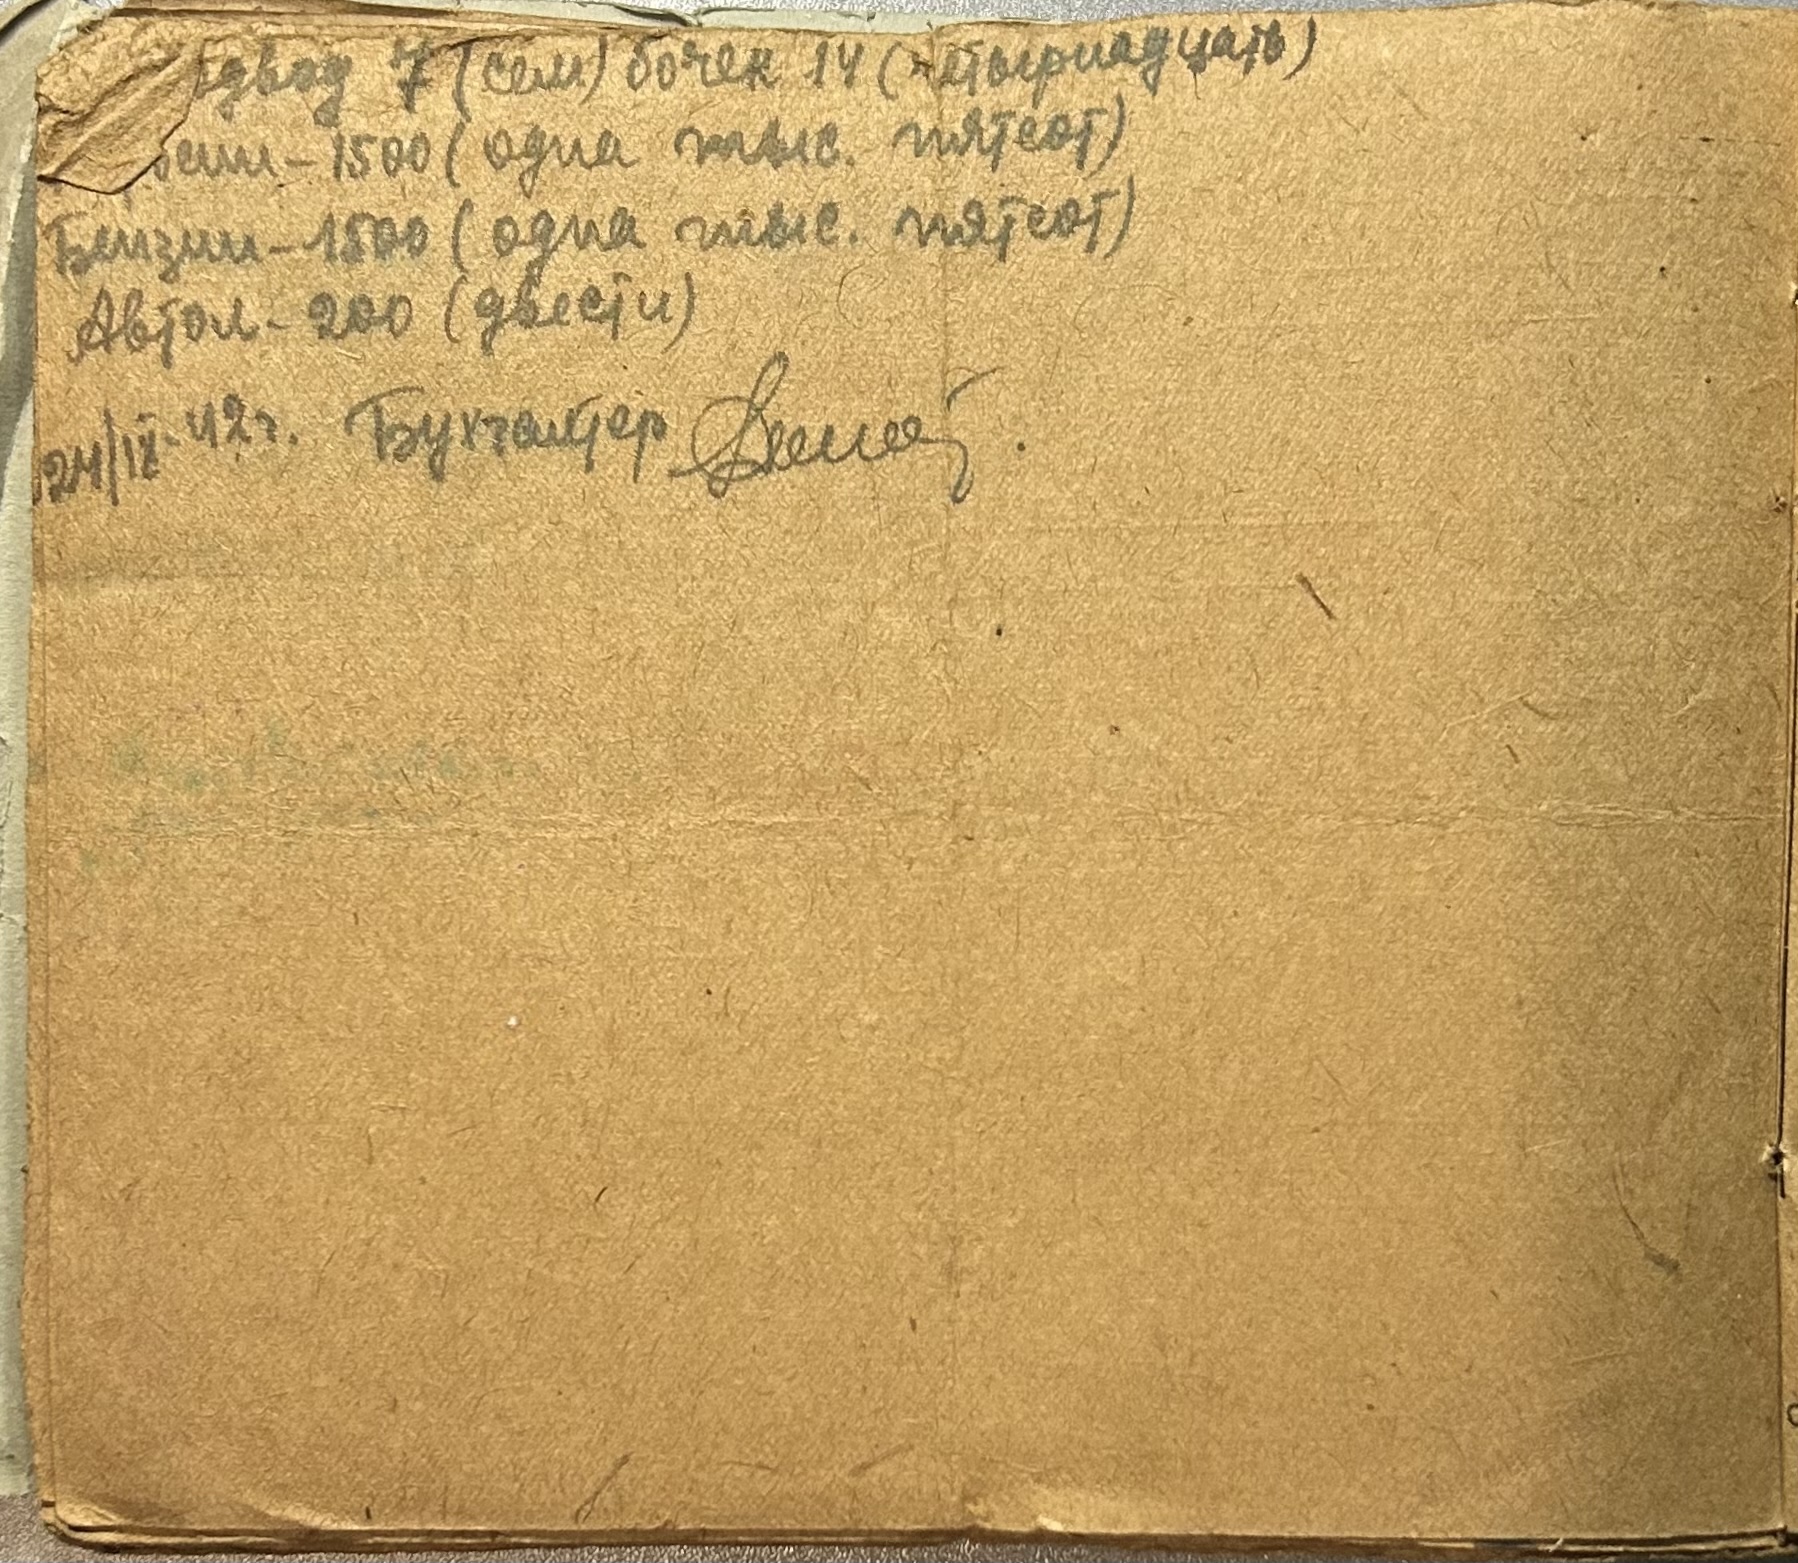 подвод 7 (сем) бочек 14 (четырнадцать)
осин - 1500 (одна тыс. пятсот)
Бензин - 1500 (одна тыс. пятсот)
Автол - 200 (двести)
24/IX-42г. Бухгалтер